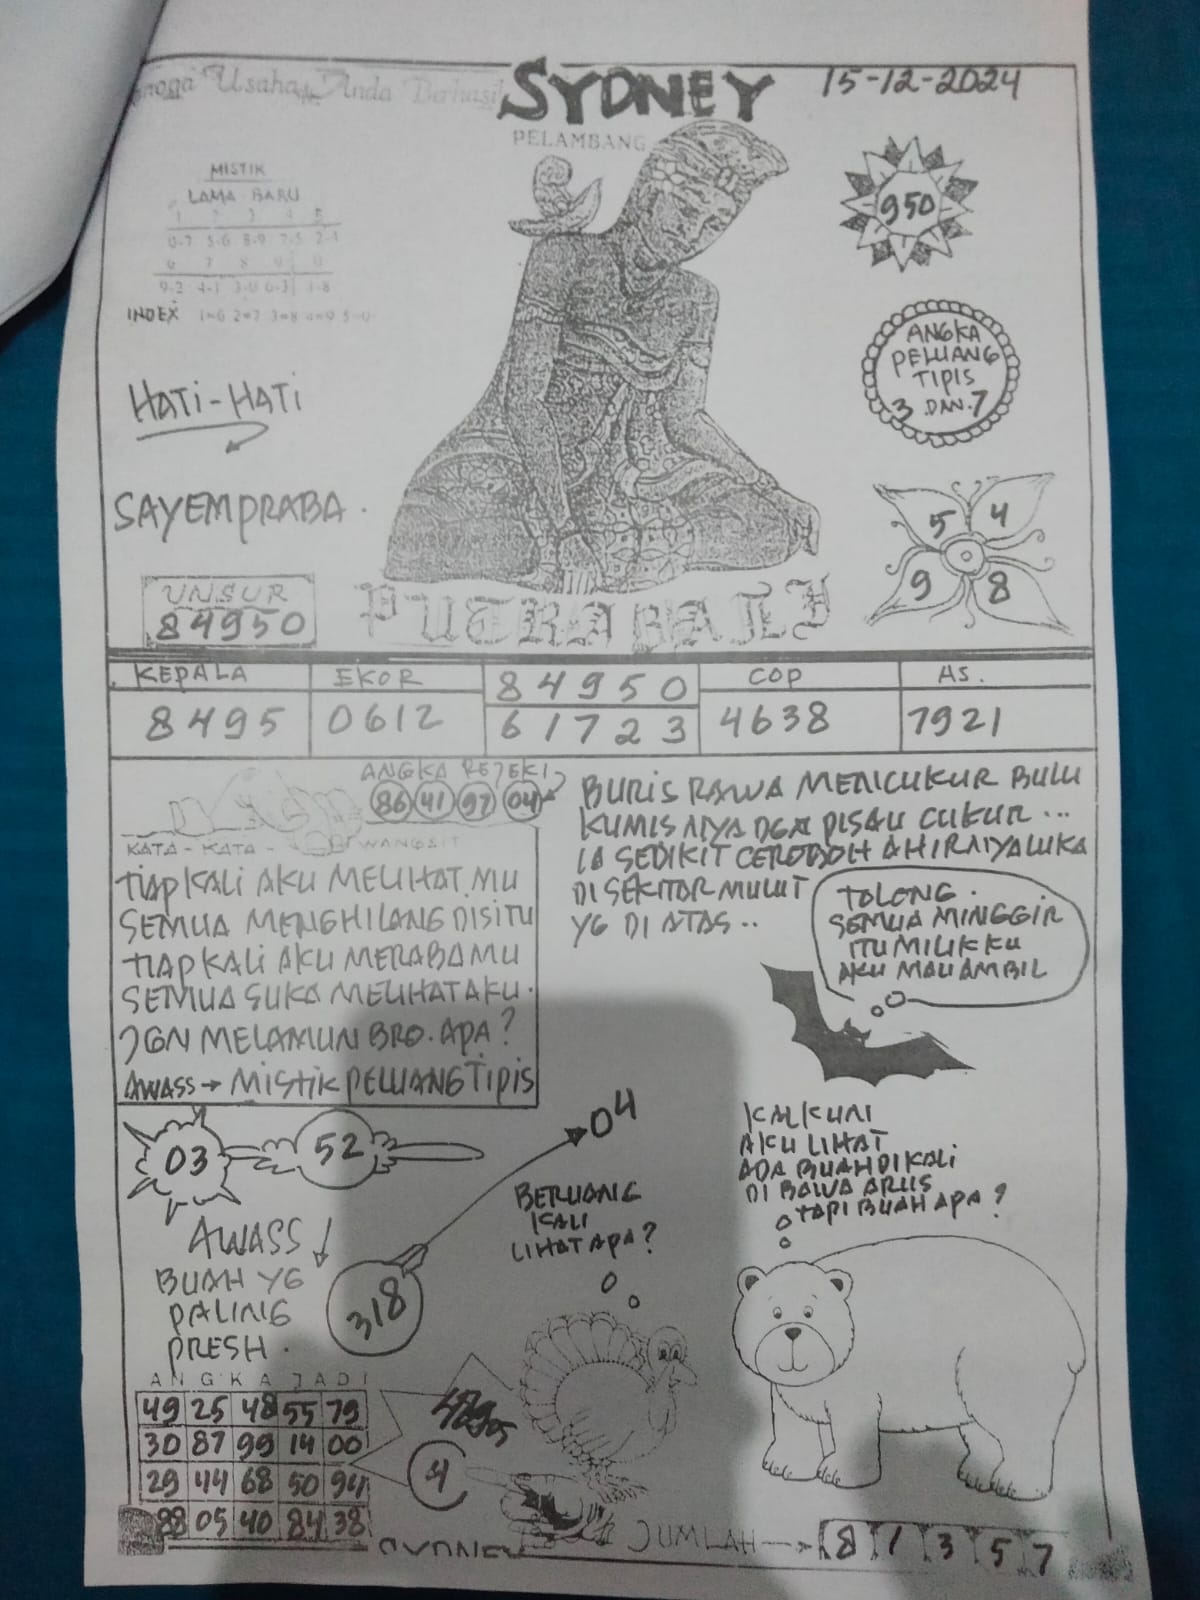 Usaha Anda Berhasil
SYDNEY
15-12-2024
PELAMBANG
MISTIK
LAMA BARU
1 2 3 4 5
0-7 5-6 8-9 7-5 2-4
6 7 8 9 0
9-2 4-1 3-0 6-3 1-8
INDEX 1=6 2=7 3=8 4=9 5=0
950
ANGKA
PELUANG
TIPIS
3 DAN 7
HATI-HATI
SAYEMPRABA.
5 4
9 8
UNSUR
84950
PUTRA BALI
KEPALA
8495
EKOR
0612
84950
61723
COP
4638
AS.
7921
ANGKA REJEKI
86 41 97 04
KATA-KATA-WANGSIT
TIAP KALI AKU MELIHAT MU
SEMUA MENGHILANG DISITU
TIAP KALI AKU MERABAMU
SEMUA SUKA MELIHAT AKU.
JGN MELAMUN BRO. APA?
AWASS → MISTIK PELUANG TIPIS
BURIS RAWA MENCUKUR BULU
KUMIS NYA DGN PISAU CUKUR...
IA SEDIKIT CEROBOH AHIRNYA LUKA
DI SEKITAR MULUT
YG DI ATAS..
TOLONG.
SEMUA MINGGIR
ITU MILIKKU
AKU MAU AMBIL
03
52
04
318
AWASS
BUAH YG
PALING
PRESH.
BERUANG
KALI
LIHAT APA?
KALKUN
AKU LIHAT
ADA BUAH DI KALI
DI BAWA ARUS
TAPI BUAH APA?
ANGKA JADI
49 25 48 55 79
30 87 99 14 00
29 44 68 50 94
88 05 40 84 38
4
JUMLAH → 8 1 3 5 7
SYDNEY